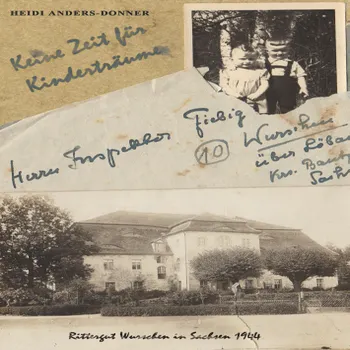 HEIDI ANDERS-DONNER
Keine Zeit für
Kinderträume
Herrn Inspektor Fiebig
10
Wurschen
über Löbau
Krs. Bautz
Sachs
Rittergut Wurschen in Sachsen 1944